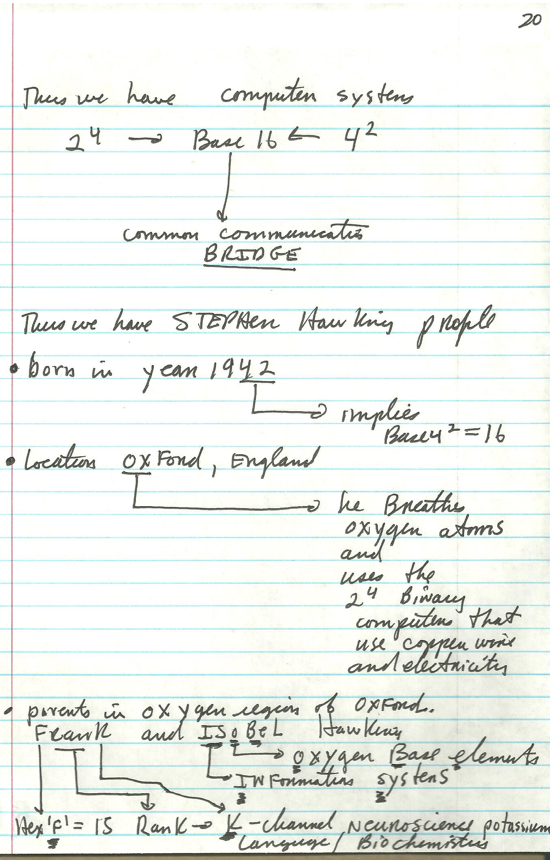 20
Thus we have computer systems
2^4 → Base 16 ← 4^2
common communicatis
BRIDGE
Thus we have STEPHEN Hawking people
• born in year 1942
implies
Base 4^2 = 16
• Location OXFord, England
he Breathes
oxygen atoms
and
uses the
2^4 Binary
computers that
use copper wire
and electricity
• parents in oxygen region of OXFord.
FranK and ISoBeL Hawking
Oxygen Base elements
INFormation systens
Hex 'F' = 15 RanK → K-channel Neuroscience potassium
Language / Biochemistus